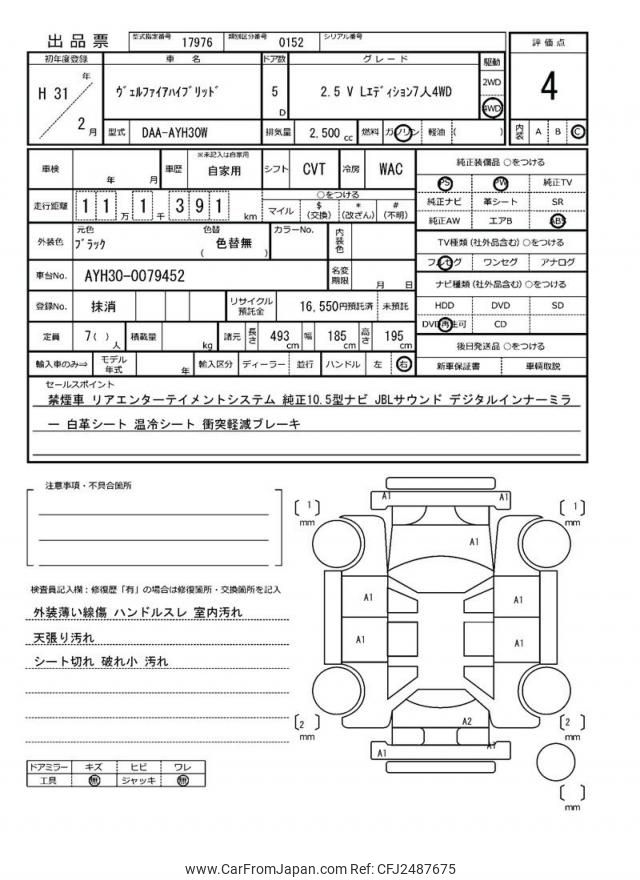 出品票
型式指定番号 17976 類別区分番号 0152 シリアル番号
初年度登録 車名 ドア数 グレード 駆動 評価点
H 31 年 2 月
ヴェルファイアハイブリッド 5 D 2.5 V Lエディション7人4WD 2WD 4WD 4
型式 DAA-AYH30W 排気量 2,500 cc 燃料 ガソリン 軽油 ( ) 内装 A B C
車検 年 月 車歴 ※未記入は自家用 自家用 シフト CVT 冷房 WAC
純正装備品 ○をつける
PS PW 純正TV
純正ナビ 革シート SR
純正AW エアB ABS
走行距離 1 1 万 1 千 3 9 1 km
○をつける
マイル $ (交換) * (改ざん) # (不明)
外装色 元色 ブラック 色替 ( 色替無 ) カラーNo. 内装色
TV種類(社外品含む) ○をつける
フルセグ ワンセグ アナログ
車台No. AYH30-0079452 名変期限 月 日
ナビ種類(社外品含む) ○をつける
HDD DVD SD
DVD再生可 CD
登録No. 抹消 リサイクル預託金 16,550円預託済 未預託
定員 7( ) 人 積載量 kg 諸元 長さ 493 cm 幅 185 cm 高さ 195 cm
後日発送品 ○をつける
新車保証書 車輌取説
輸入車のみ⇒ モデル年式 年 輸入区分 ディーラー 並行 ハンドル 左 右
セールスポイント
禁煙車 リアエンターテイメントシステム 純正10.5型ナビ JBLサウンド デジタルインナーミラ
ー 白革シート 温冷シート 衝突軽減ブレーキ
注意事項・不具合箇所
検査員記入欄：修復歴「有」の場合は修復箇所・交換箇所を記入
外装薄い線傷 ハンドルスレ 室内汚れ
天張り汚れ
シート切れ 破れ小 汚れ
ドアミラー キズ ヒビ ワレ
工具 無 ジャッキ 無
A1 A1
[ 1 ] mm
[ 1 ] mm
A1
A1 A1
A1 A1
A2
[ 2 ] mm
[ 2 ] mm
A1 A1
[ ] mm
www.CarFromJapan.com Ref: CFJ2487675